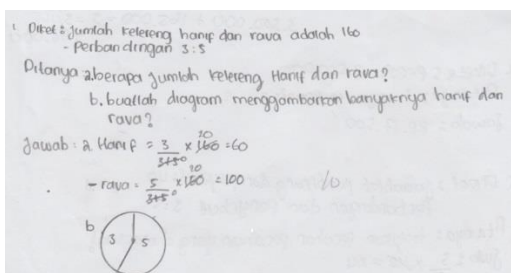 1. Diket : jumlah kelereng hanif dan rava adalah 160
- Perbandingan 3:5
Ditanya a. berapa jumlah kelereng Hanif dan rava?
b. buatlah diagram menggambarkan banyaknya hanif dan
rava?
Jawab : a. Hanif = 3/(3+5) × 160 20 = 60
- rava = 5/(3+5) × 160 20 = 100
b.
3 5